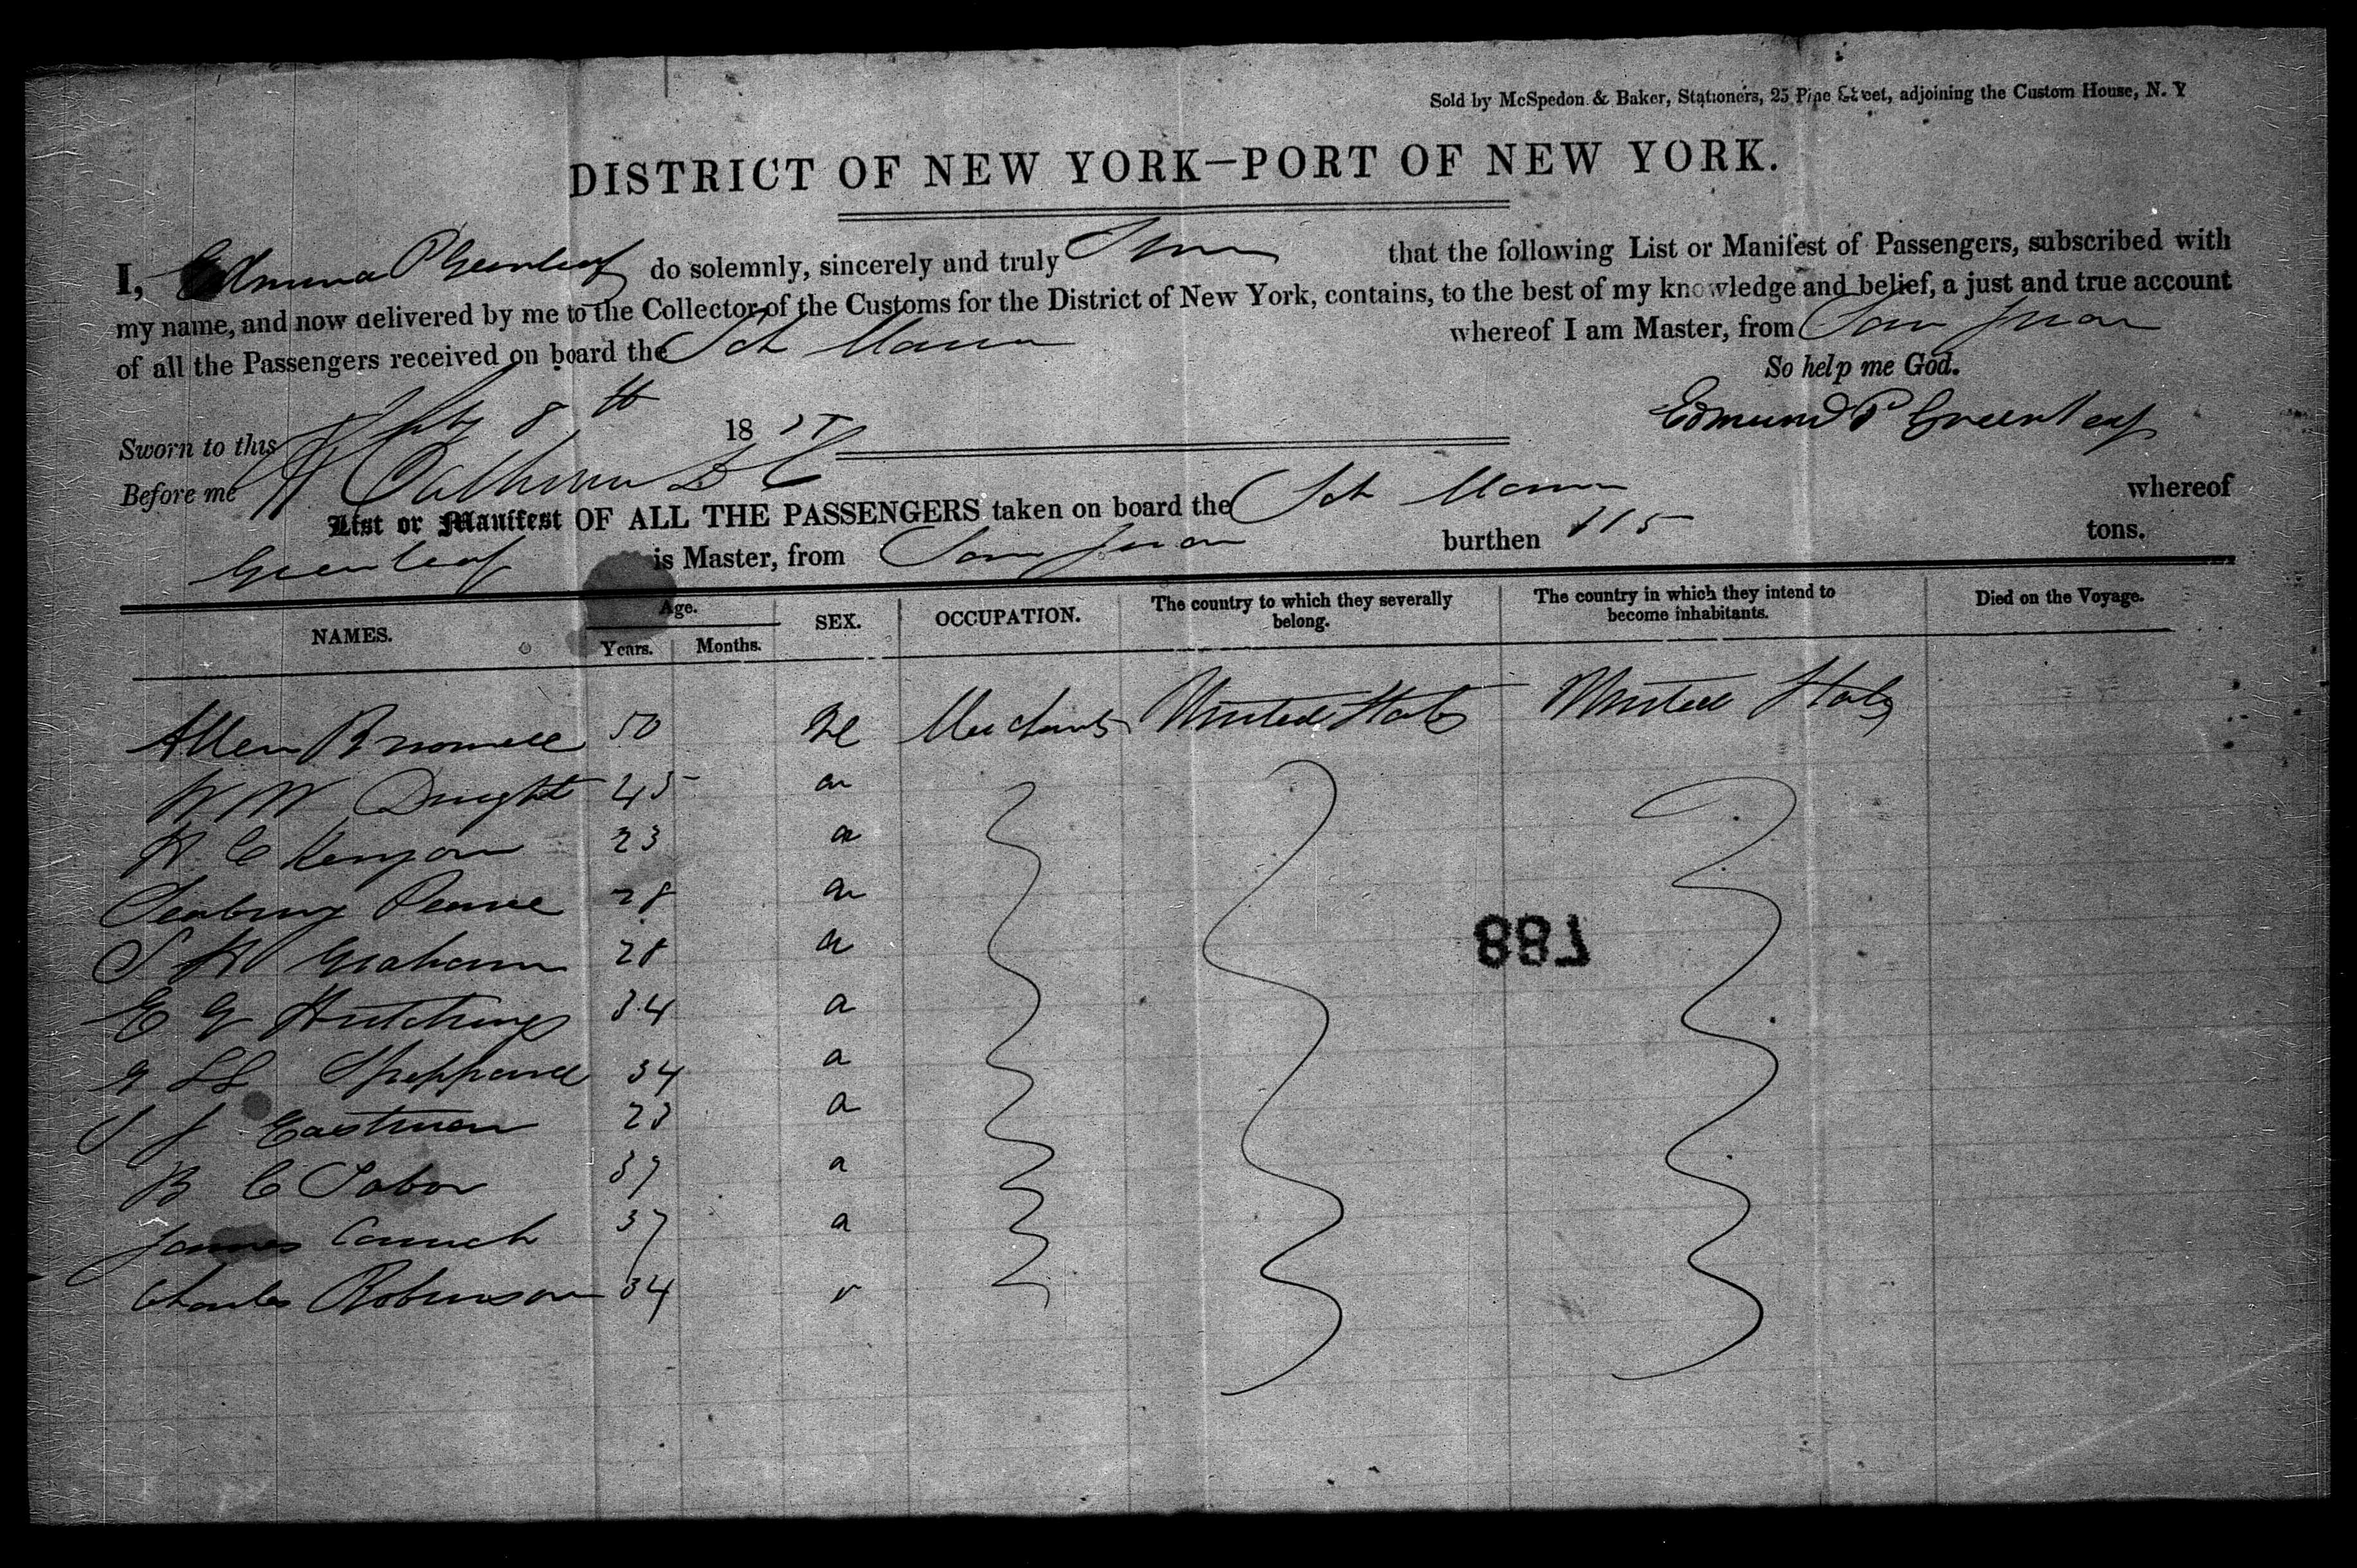 Sold by McSpedon & Baker, Stationers, 25 Pine Street, adjoining the Custom House, N. Y
DISTRICT OF NEW YORK—PORT OF NEW YORK.
I, Edmund P Greenleaf do solemnly, sincerely and truly that the following List or Manifest of Passengers, subscribed with
my name, and now delivered by me to the Collector of the Customs for the District of New York, contains, to the best of my knowledge and belief, a just and true account
of all the Passengers received on board the Sch whereof I am Master, from San Juan
So help me God.
Edmund P Greenleaf
Sworn to this 8th 18
Before me Calhoun
List or Manifest OF ALL THE PASSENGERS taken on board the Sch whereof
Greenleaf is Master, from San Juan burthen 115 tons.
NAMES. Age. Years. Months. SEX. OCCUPATION. The country to which they severally belong. The country in which they intend to become inhabitants. Died on the Voyage.
Allen Brownell 50 Merchants United States United States
W W Dwight 45
C Kenyon 23
Seabury Pearce 28
S W Graham 28
E G Hutchings 34
Sheppard 34
J Eastman 23
B C Tabor 37
James Couch 37
Charles Robinson 34
788